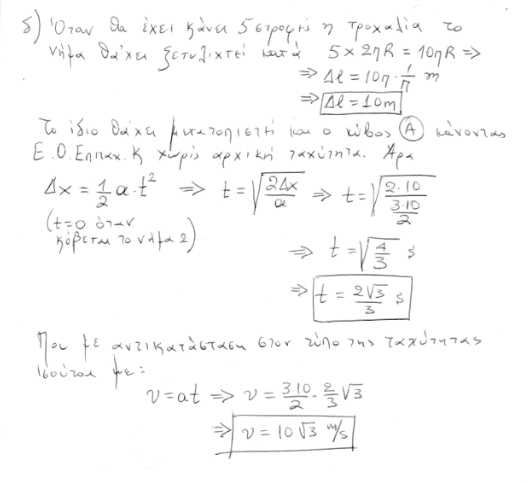 δ) Όταν θα έχει κάνει 5 στροφές η τροχαλία το
νήμα θα'χει ξετυλιχτεί κατά 5 × 2πR = 10πR ⇒
⇒ Δℓ = 10π · 1/π m
⇒ Δℓ = 10m
Το ίδιο θα'χει μετατοπιστεί και ο κύβος Α κάνοντας
Ε.Ο.Επιταχ.Κ χωρίς αρχική ταχύτητα. Άρα
Δx = 1/2 a · t² ⇒ t = √(2Δx/a) ⇒ t = √(2·10/(3·10/2))
(t=0 όταν
κόβεται το νήμα 2)
⇒ t = √(4/3) s
⇒ t = 2√3/3 s
Που με αντικατάσταση στον τύπο της ταχύτητας
ισούται με:
v = at ⇒ v = 3·10/2 · 2/3 √3
⇒ v = 10√3 m/s